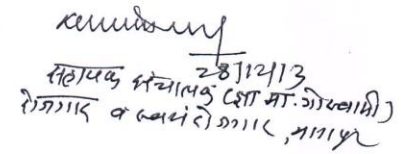 28/12/13
सहायक संचालक (ज्ञा. मा. गोस्वामी)
रोजगार व स्वयंरोजगार, नागपूर